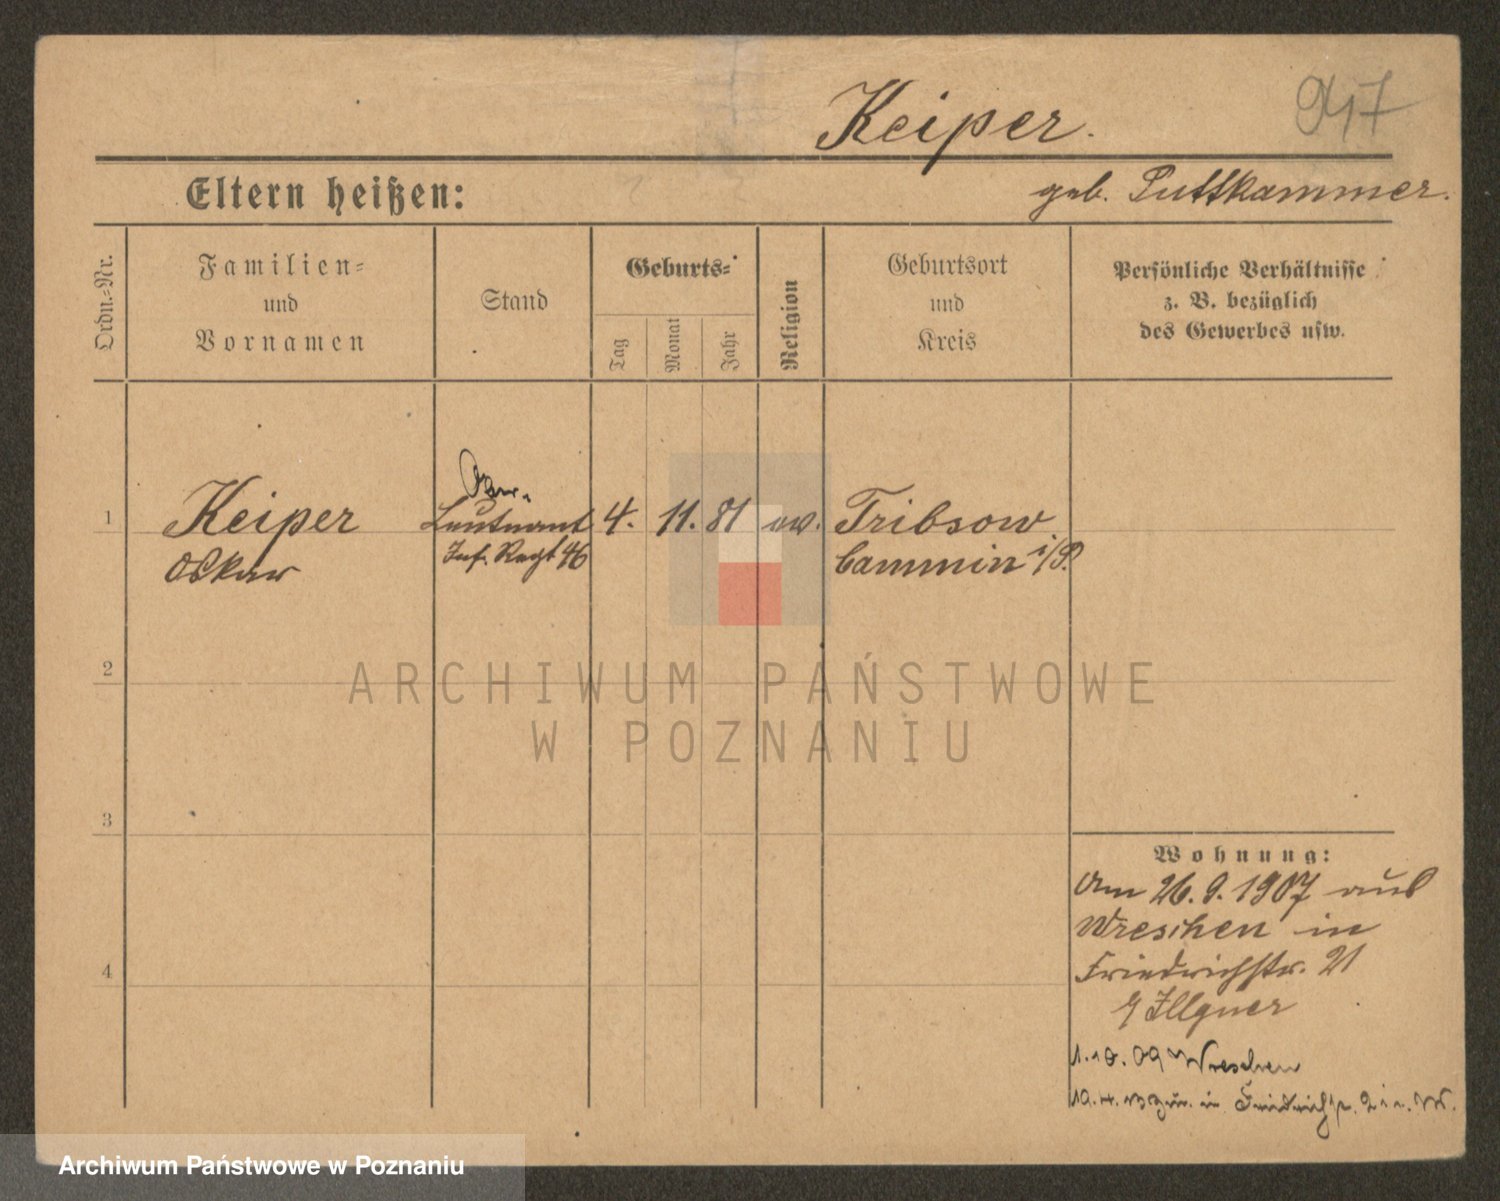 Keiper.
947
Eltern heißen:
geb. Puttkammer.
Ordn.-Nr.
Familien-
und
Vornamen
Stand
Geburts-
Tag
Monat
Jahr
Religion
Geburtsort
und
Kreis
Persönliche Verhältnisse
z. B. bezüglich
des Gewerbes usw.
1
Keiper
Oskar
Ober-
Leutnant
Inf. Regt 46
4.
11.
81
ev.
Tribsow
Cammin i/P.
2
3
4
Wohnung:
Am 26.9.1907 aus
Wreschen in
Friedrichstr. 21
b/ Illgner
1.10.09 Wreschen
in
ARCHIWUM PAŃSTWOWE
W POZNANIU
Archiwum Państwowe w Poznaniu